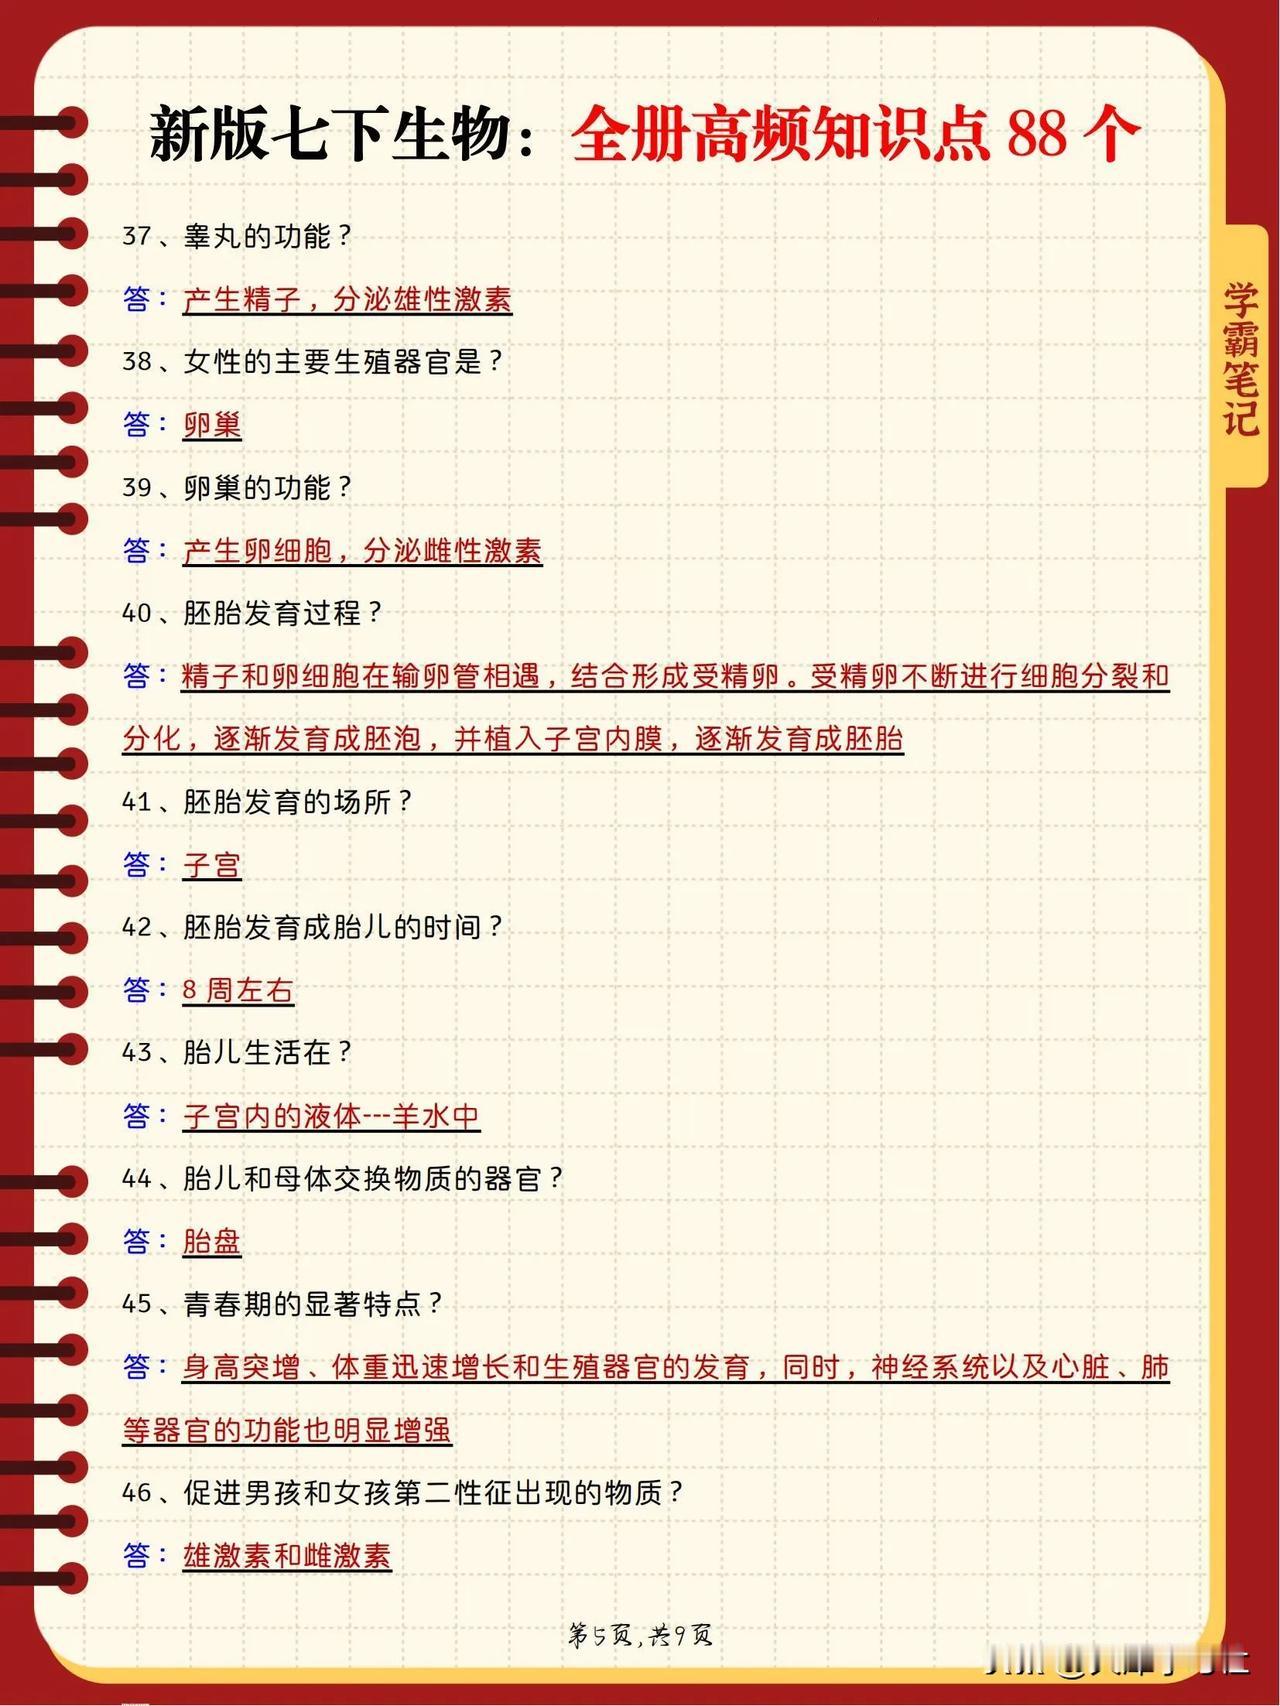 新版七下生物：全册高频知识点 88 个
学霸笔记
37、睾丸的功能？
答：产生精子，分泌雄性激素
38、女性的主要生殖器官是？
答：卵巢
39、卵巢的功能？
答：产生卵细胞，分泌雌性激素
40、胚胎发育过程？
答：精子和卵细胞在输卵管相遇，结合形成受精卵。受精卵不断进行细胞分裂和
分化，逐渐发育成胚泡，并植入子宫内膜，逐渐发育成胚胎
41、胚胎发育的场所？
答：子宫
42、胚胎发育成胎儿的时间？
答：8 周左右
43、胎儿生活在？
答：子宫内的液体---羊水中
44、胎儿和母体交换物质的器官？
答：胎盘
45、青春期的显著特点？
答：身高突增、体重迅速增长和生殖器官的发育，同时，神经系统以及心脏、肺
等器官的功能也明显增强
46、促进男孩和女孩第二性征出现的物质？
答：雄激素和雌激素
第5页,共9页